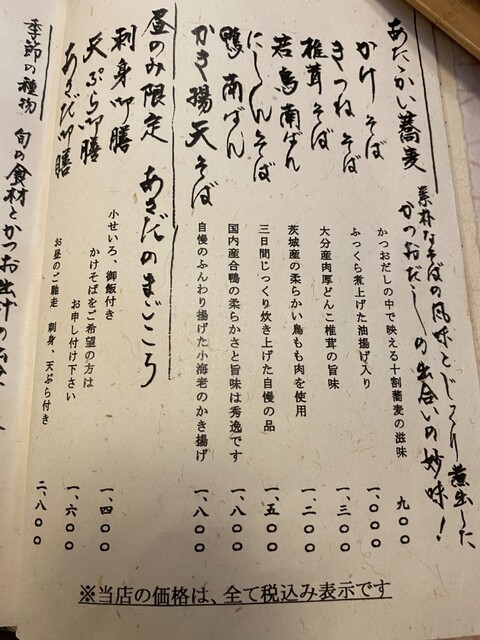 あたゝかい蕎麦
素朴なそばの風味とじっくり煮出した、
かつおだしの出合いの妙味！
かけそば
かつおだしの中で映える十割蕎麦の滋味
九〇〇
きつねそば
ふっくら煮上げた油揚げ入り
一、〇〇〇
椎茸そば
大分産肉厚どんこ椎茸の旨味
一、三〇〇
若鳥南ばん
茨城産の柔らかい鳥もも肉を使用
一、二〇〇
にしんそば
三日間じっくり炊き上げた自慢の品
一、五〇〇
鴨南ばん
国内産合鴨の柔らかさと旨味は秀逸です
一、八〇〇
かき揚天そば
自慢のふんわり揚げた小海老のかき揚げ
一、八〇〇
昼のみ限定 あさだのまごころ
刺身御膳
小せいろ、御飯付き
一、四〇〇
天ぷら御膳
かけそばをご希望の方は
お申し付け下さい
一、六〇〇
あさだ御膳
お昼のご馳走 刺身、天ぷら付き
二、八〇〇
季節の種物
旬の食材とかつお出汁の
※当店の価格は、全て税込み表示です